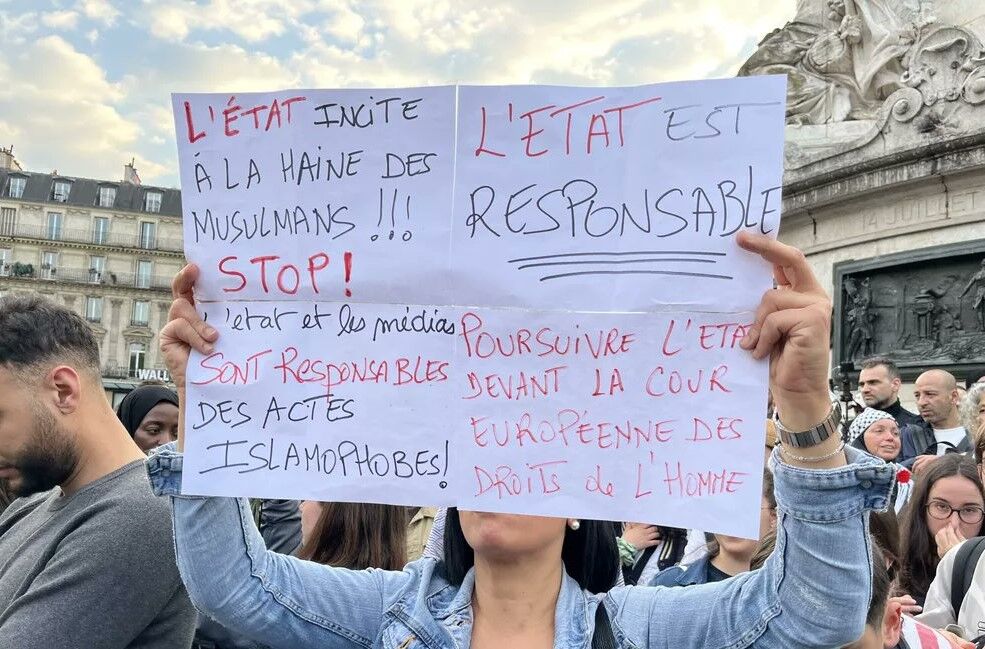 L'ÉTAT INCITE
À LA HAINE DES
MUSULMANS !!!
STOP!
L'ETAT EST
RESPONSABLE
L'etat et les médias
SONT RESPONSABLES
DES ACTES
ISLAMOPHOBES!
POURSUIVRE L'ETAT
DEVANT LA COUR
EUROPÉENNE DES
DROITS de L'HOMME
14 JUILLET
WALL